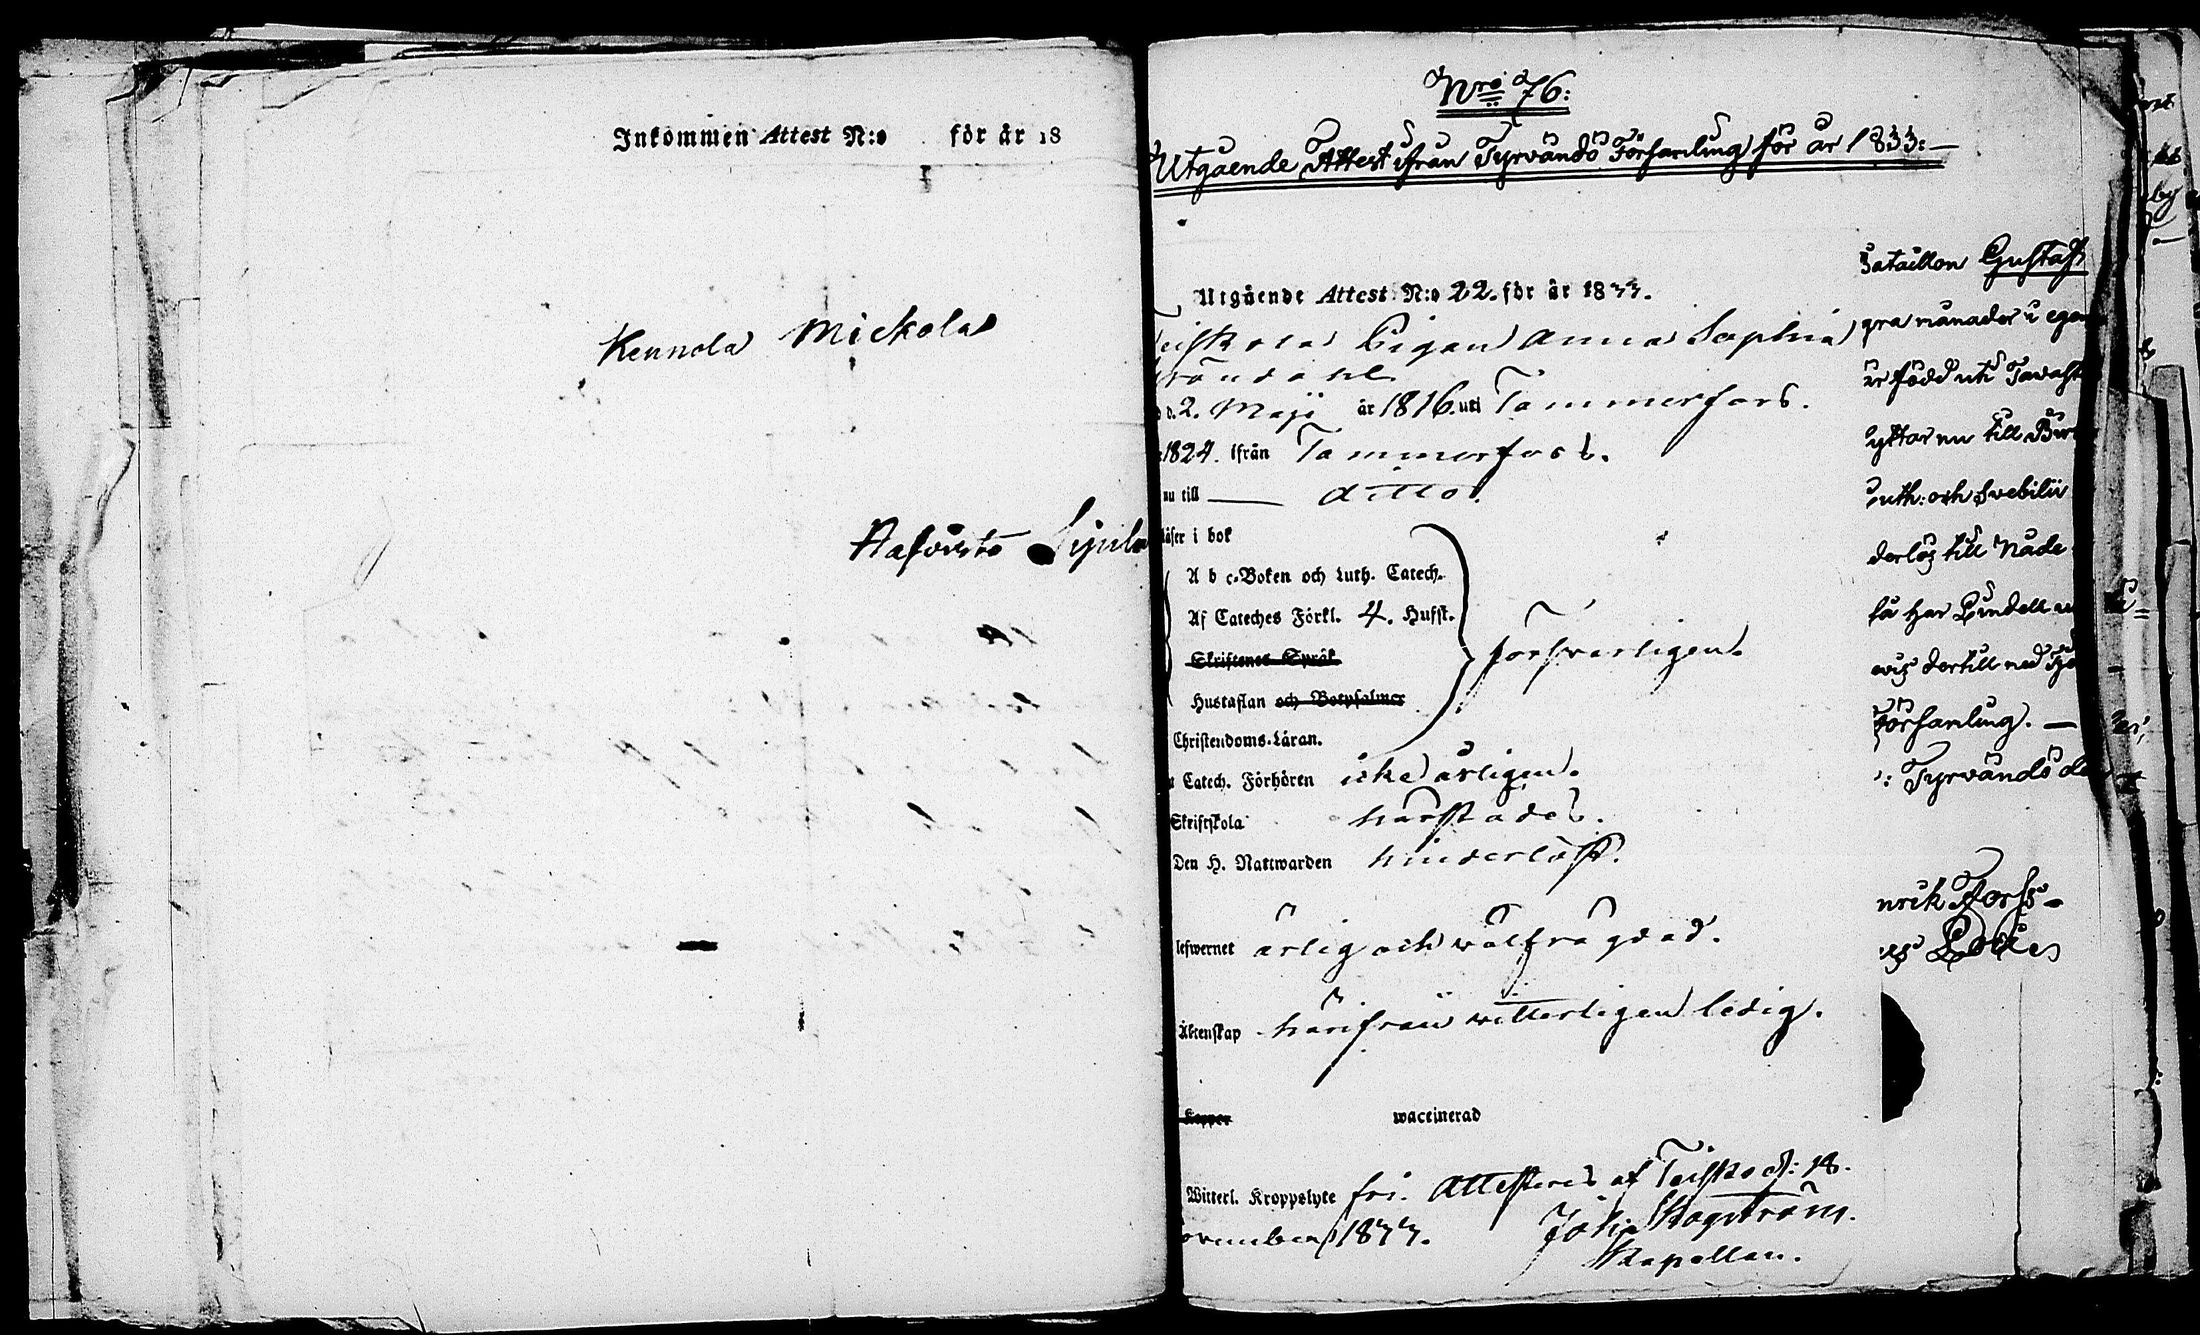 Inkommen Attest N:o för år 18
Kennola Mickola
Nro 76:
Utgående Attest ifrån Tyrvändö Församling för år 1833:—
Utgående Attest N:o 22. för år 1833.
Pigan Anna Sophia
d. 2. Maji år 1816. uti Tammerfors.
1824. ifrån Tammerfors.
nu till — ditto.
läser i bok
A b c-Boken och Luth. Catech.
Af Cateches Förkl. 4. Hufst.
Skriftenes Språk
försvarligen.
Hustaflan och Botpsalmer
Christendoms-Läran.
Catech. Förhören icke årligen.
Skriftskola härstädes.
Den H. Nattwarden hinderlöst.
lefwernet ärlig och wälfrägdad.
Äktenskap härifrån witterligen ledig.
Koppor waccinerad
Witterl. Kroppslyte fri. Attesteras af Teisko d: 18.
ovember 1833. Joh: Skogström.
Kapellan.
bataillon Gustaf
gra månader i egen
är född uti Tavast
yttar nu till Bir
Luth: och Svebilii
derlös till Nade
få har Lindell
vis dertill med
Församling. —
: Tyrvändö d
nrik Forss-